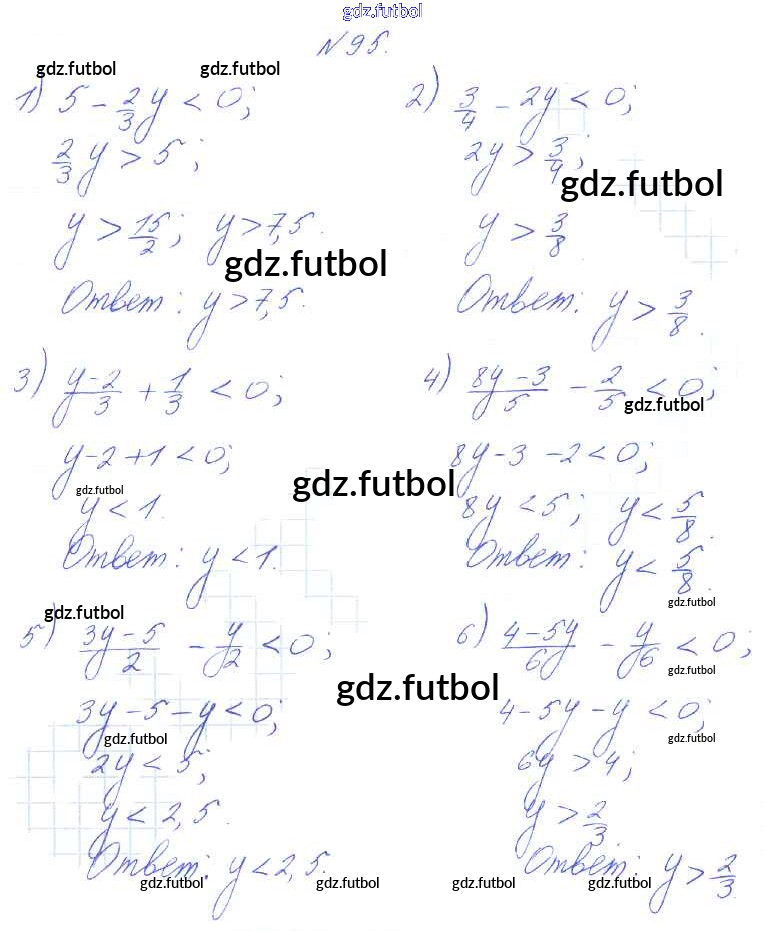 gdz.futbol
N95.
gdz.futbol gdz.futbol
1) 5 - 2/3 y < 0;
2/3 y > 5;
y > 15/2; y > 7,5.
gdz.futbol
Ответ: y > 7,5.
2) 3/4 - 2y < 0;
2y > 3/4;
gdz.futbol
y > 3/8.
Ответ: y > 3/8.
3) (y-2)/3 + 1/3 < 0;
y-2+1 < 0;
gdz.futbol
gdz.futbol
y < 1.
Ответ: y < 1.
4) (8y-3)/5 - 2/5 < 0;
gdz.futbol
8y-3-2 < 0;
8y < 5; y < 5/8.
Ответ: y < 5/8.
gdz.futbol
gdz.futbol
5) (3y-5)/2 - y/2 < 0;
gdz.futbol
3y-5-y < 0;
gdz.futbol
2y < 5;
y < 2,5.
Ответ: y < 2,5.
gdz.futbol gdz.futbol
6) (4-5y)/6 - y/6 < 0;
gdz.futbol
4-5y-y < 0;
gdz.futbol
6y > 4;
y > 2/3.
Ответ: y > 2/3.
gdz.futbol gdz.futbol